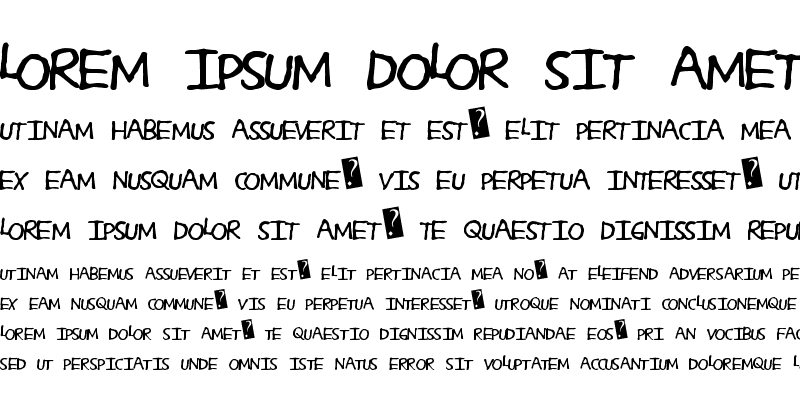 LOREM IPSUM DOLOR SIT AMET
UTINAM HABEMUS ASSUEVERIT ET EST? ELIT PERTINACIA MEA
EX EAM NUSQUAM COMMUNE? VIS EU PERPETUA INTERESSET? UT
LOREM IPSUM DOLOR SIT AMET? TE QUAESTIO DIGNISSIM REPUD
UTINAM HABEMUS ASSUEVERIT ET EST? ELIT PERTINACIA MEA NO? AT ELEIFEND ADVERSARIUM PE
EX EAM NUSQUAM COMMUNE? VIS EU PERPETUA INTERESSET? UTROQUE NOMINATI CONCLUSIONEMQUE
LOREM IPSUM DOLOR SIT AMET? TE QUAESTIO DIGNISSIM REPUDIANDAE EOS? PRI AN VOCIBUS FAC
SED UT PERSPICIATIS UNDE OMNIS ISTE NATUS ERROR SIT VOLUPTATEM ACCUSANTIUM DOLOREMQUE L